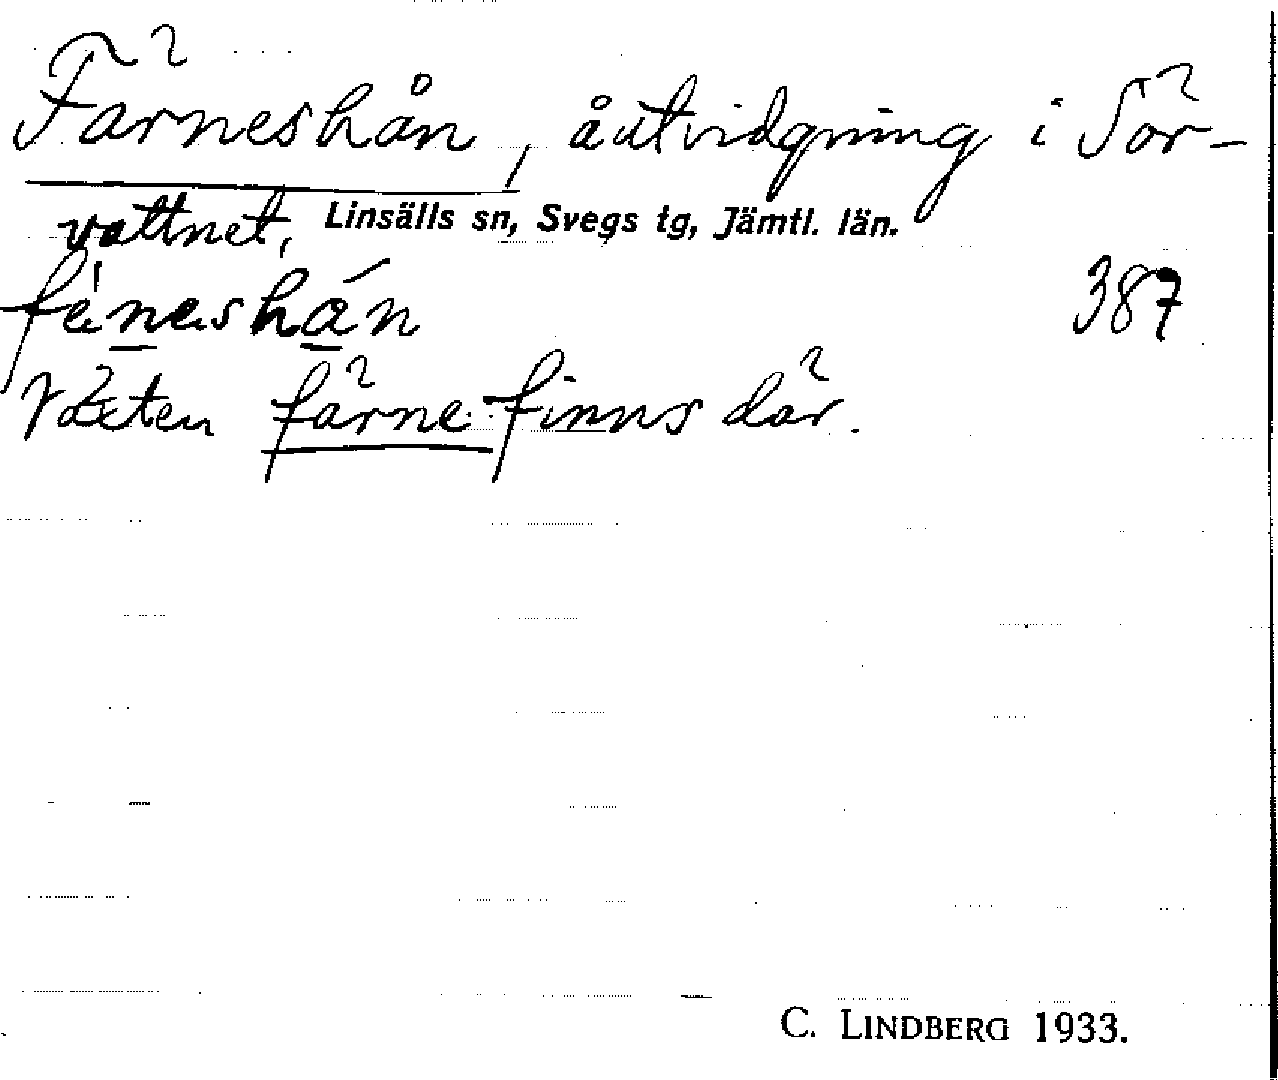 Färneshån, åutvidgning i Sör-
vattnet, Linsälls sn, Svegs tg, Jämtl. län.
387
Växten färne finns där.
C. LINDBERG 1933.